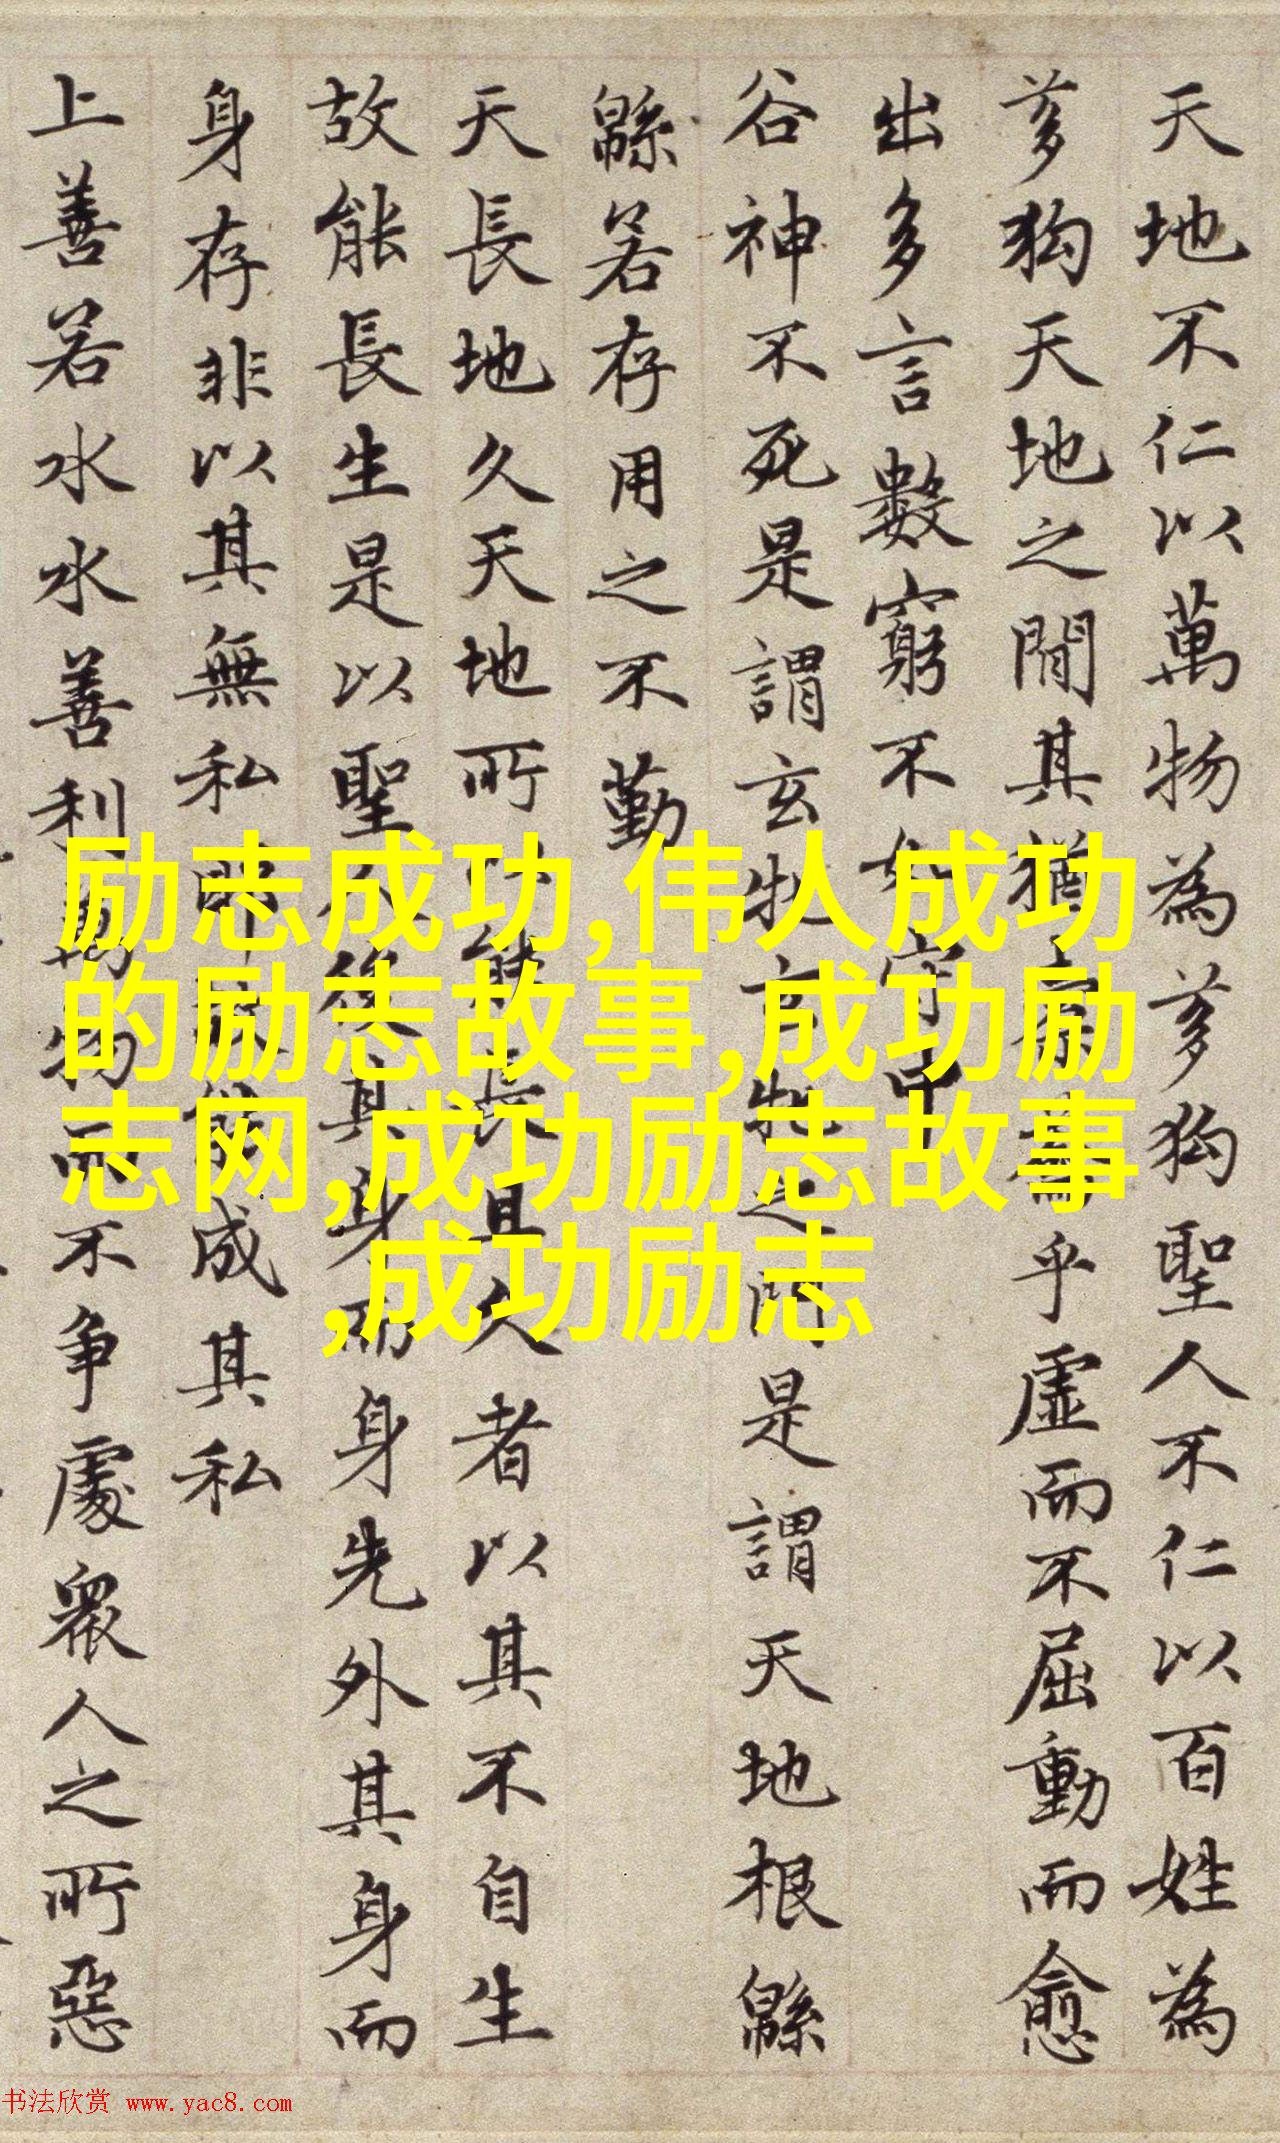 天地不仁以萬物為芻狗聖人不仁以百姓為
芻狗天地之間其猶乎虛而不屈動而愈
出多言數窮不如守中
谷神不死是謂玄牝玄牝之門是謂天地根緜
緜若存用之不勤
天長地久天地所以能長且久者以其不自生
故能長生是以聖人後其身而身先外其身而
身存非以其無私耶故能成其私
上善若水水善利萬物而不争處衆人之所惡
励志成功,伟人成功
的励志故事,成功励
志网,成功励志故事
,成功励志
书法欣赏 www.yac8.com